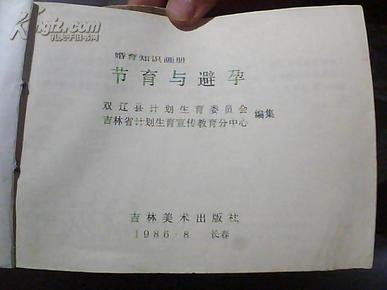 婚育知识画册
节育与避孕
双辽县计划生育委员会
吉林省计划生育宣传教育分中心
编集
吉林美术出版社
1986·8 长春